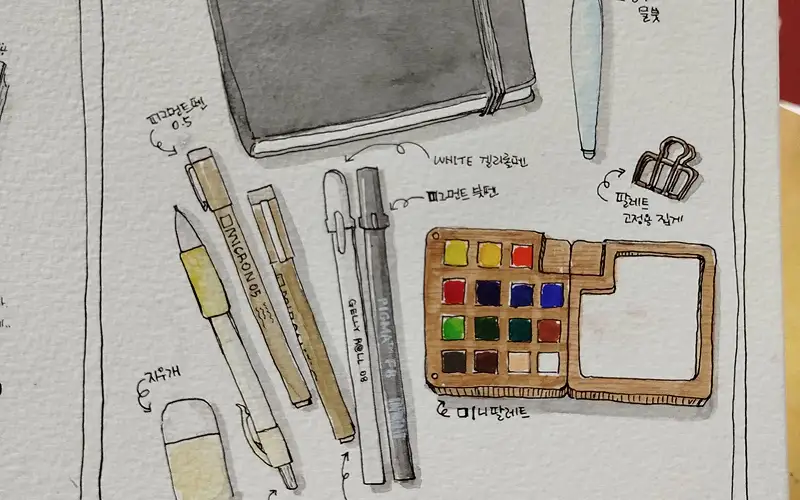 물붓
피그먼트펜
0.5
WHITE 겔리롤펜
피그먼트 붓펜
팔레트
고정용 집게
MICRON 05
GELLY ROLL 08
PIGMA
지우개
미니팔레트